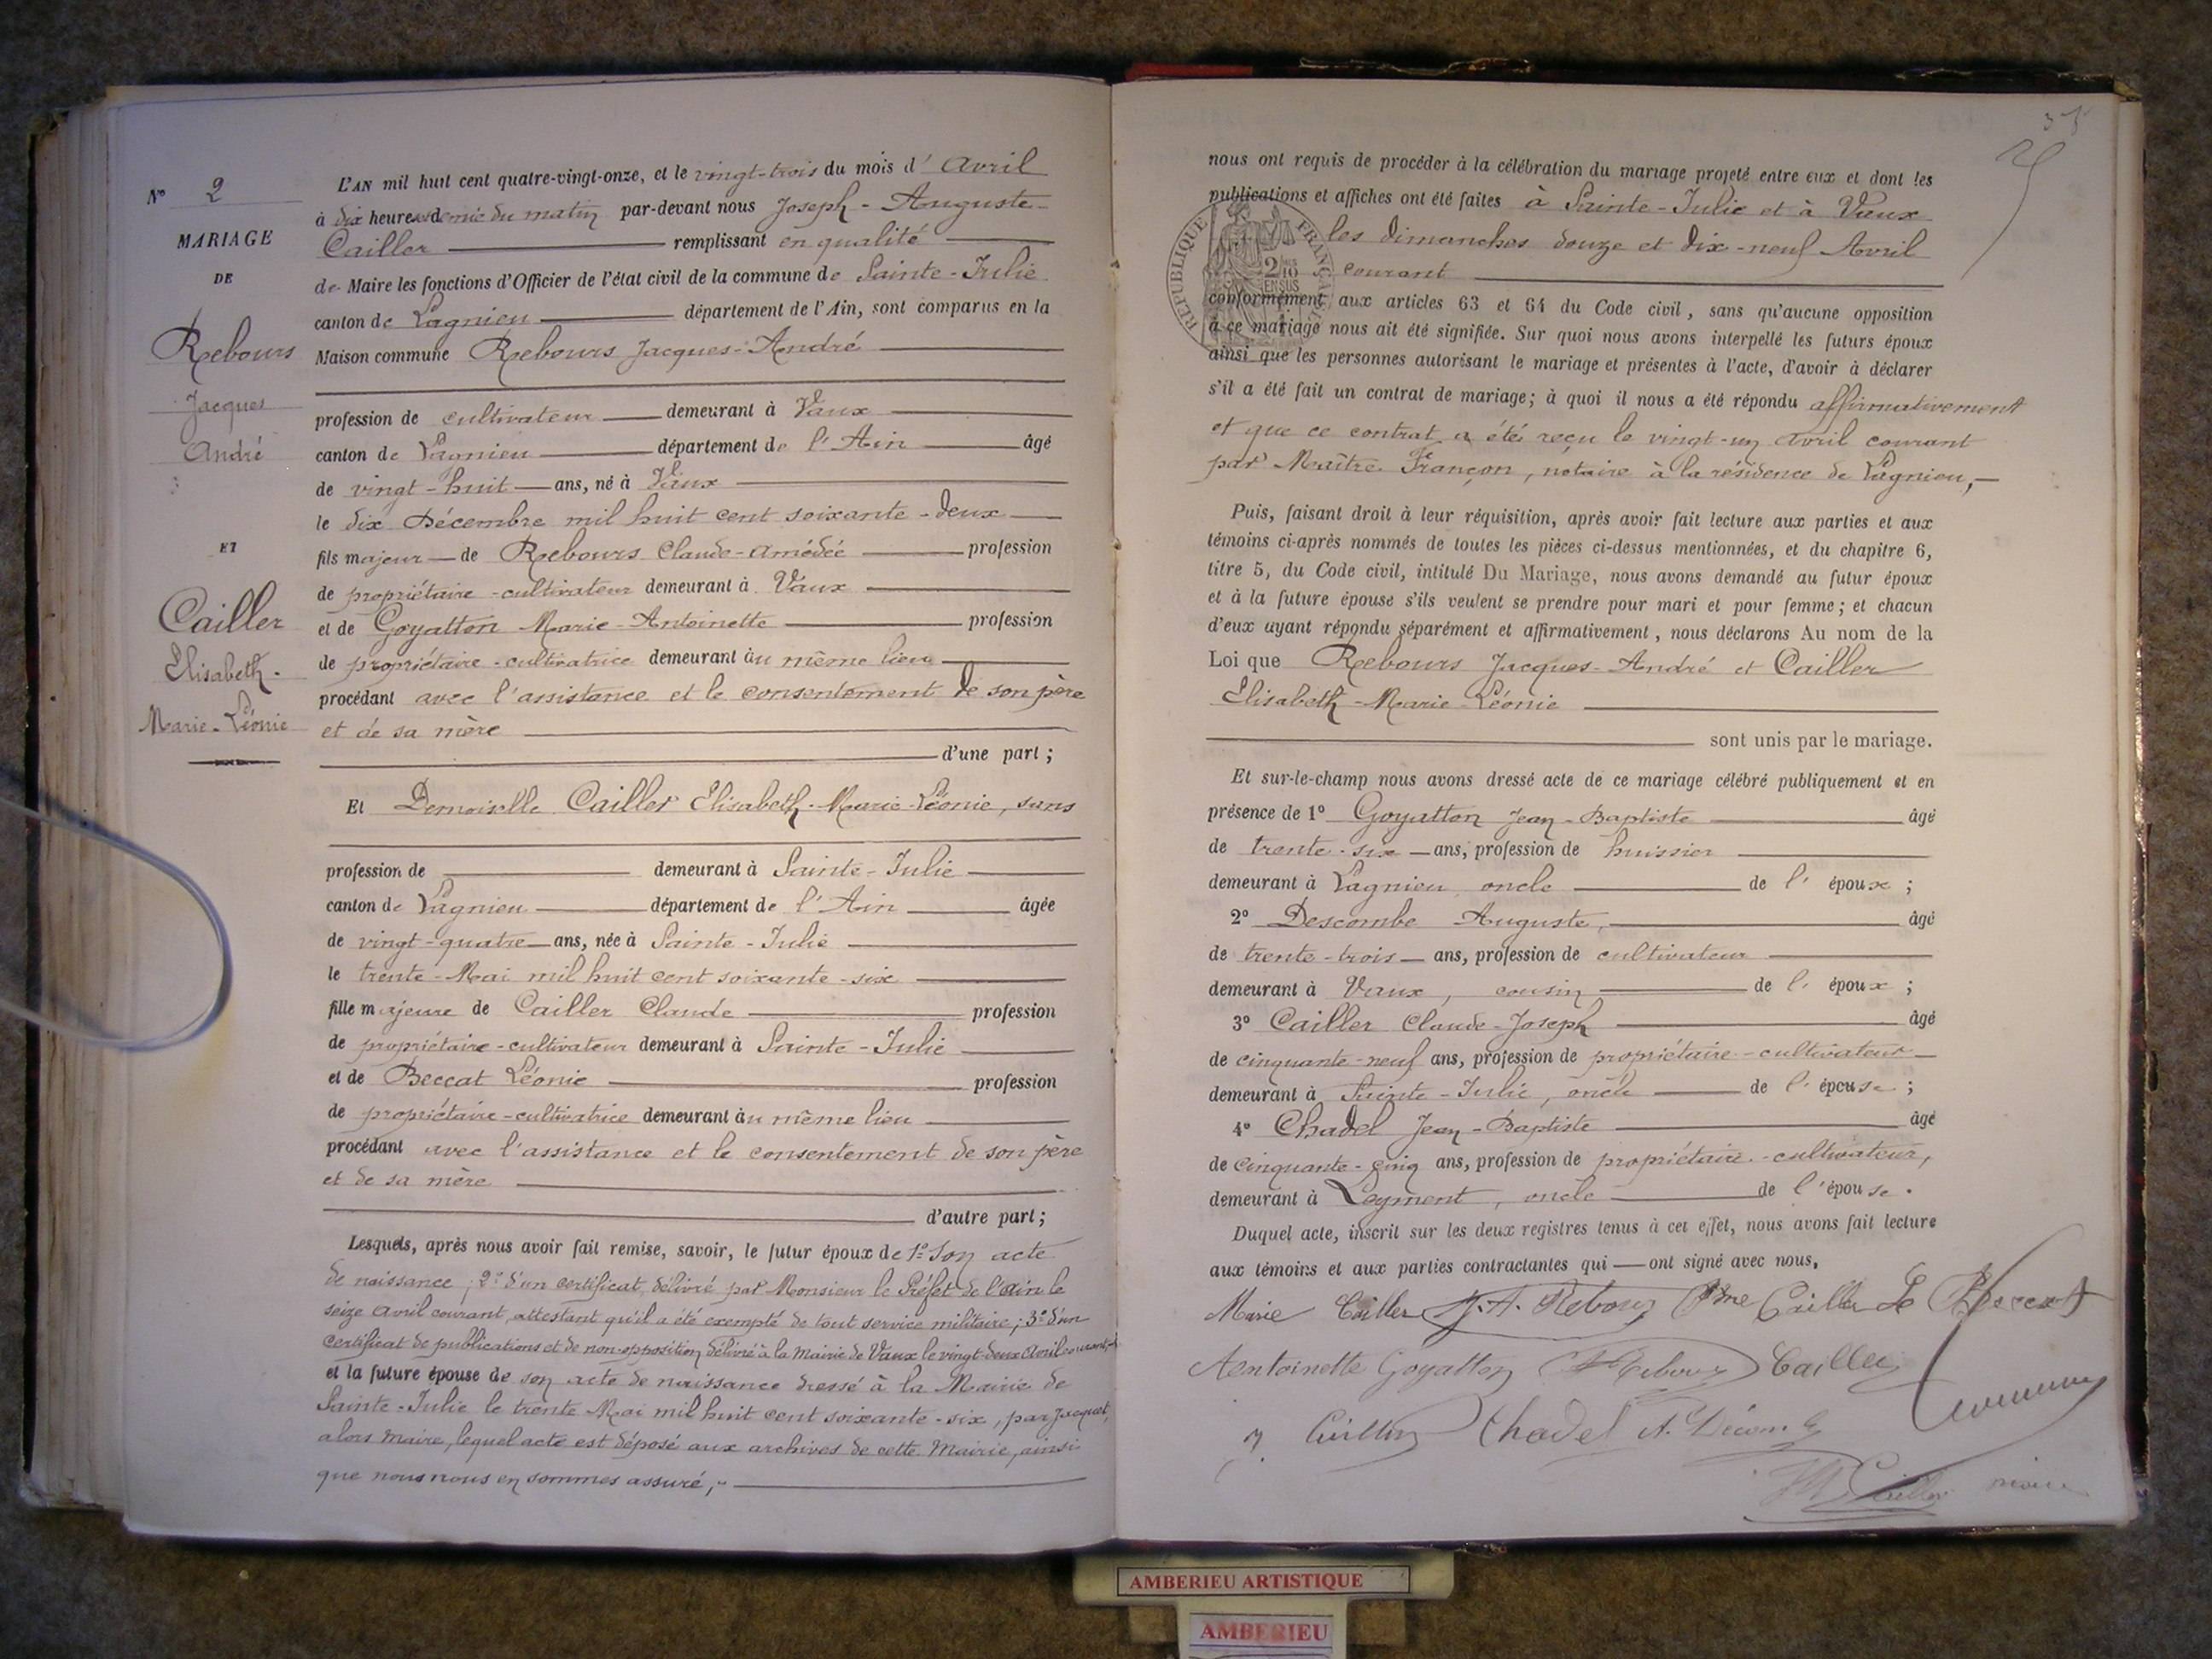 Nº 2
MARIAGE
DE
Rebours
Jacques
André
ET
Cailler
Elisabeth-
Marie-Léonie
L'AN mil huit cent quatre-vingt-onze, et le vingt-trois du mois d'Avril
à dix heures et demie du matin par-devant nous Joseph-Auguste
Cailler remplissant en qualité
de Maire les fonctions d'Officier de l'état civil de la commune de Sainte-Julie
canton de Lagnieu département de l'Ain, sont comparus en la
Maison commune Rebours Jacques-André
profession de cultivateur demeurant à Vaux
canton de Lagnieu département de l'Ain âgé
de vingt-huit ans, né à Vaux
le dix Décembre mil huit cent soixante-deux
fils majeur de Rebours Claude-Amédée profession
de propriétaire-cultivateur demeurant à Vaux
et de Goyatton Marie-Antoinette profession
de propriétaire-cultivatrice demeurant au même lieu
procédant avec l'assistance et le consentement de son père
et de sa mère
d'une part;
Et Demoiselle Cailler Elisabeth-Marie-Léonie, sans
profession de demeurant à Sainte-Julie
canton de Lagnieu département de l'Ain âgée
de vingt-quatre ans, née à Sainte-Julie
le trente-Mai mil huit cent soixante-six
fille majeure de Cailler Claude profession
de propriétaire-cultivateur demeurant à Sainte-Julie
et de Beccat Léonie profession
de propriétaire-cultivatrice demeurant au même lieu
procédant avec l'assistance et le consentement de son père
et de sa mère
d'autre part;
Lesquels, après nous avoir fait remise, savoir, le futur époux de 1º Son acte
de naissance; 2º d'un certificat délivré par Monsieur le Préfet de l'Ain le
seize Avril courant, attestant qu'il a été exempté de tout service militaire; 3º d'un
certificat de publications et de non-opposition délivré à la Mairie de Vaux le vingt-deux Avril courant,
et la future épouse de son acte de naissance dressé à la Mairie de
Sainte-Julie le trente Mai mil huit cent soixante-six, par Jacquet,
alors Maire, lequel acte est déposé aux archives de cette Mairie, ainsi
que nous nous en sommes assuré,-
nous ont requis de procéder à la célébration du mariage projeté entre eux et dont les
publications et affiches ont été faites à Sainte-Julie et à Vaux
les dimanches douze et dix-neuf Avril
courant
RÉPUBLIQUE FRANÇAISE
2/10 EN SUS
conformément aux articles 63 et 64 du Code civil, sans qu'aucune opposition
à ce mariage nous ait été signifiée. Sur quoi nous avons interpellé les futurs époux
ainsi que les personnes autorisant le mariage et présentes à l'acte, d'avoir à déclarer
s'il a été fait un contrat de mariage; à quoi il nous a été répondu affirmativement
et que ce contrat a été reçu le vingt-un Avril courant
par Maître Françon, notaire à la résidence de Lagnieu,-
Puis, faisant droit à leur réquisition, après avoir fait lecture aux parties et aux
témoins ci-après nommés de toutes les pièces ci-dessus mentionnées, et du chapitre 6,
titre 5, du Code civil, intitulé Du Mariage, nous avons demandé au futur époux
et à la future épouse s'ils veulent se prendre pour mari et pour femme; et chacun
d'eux ayant répondu séparément et affirmativement, nous déclarons Au nom de la
Loi que Rebours Jacques-André et Cailler
Elisabeth-Marie-Léonie
sont unis par le mariage.
Et sur-le-champ nous avons dressé acte de ce mariage célébré publiquement et en
présence de 1º Goyatton Jean-Baptiste âgé
de trente-six ans, profession de huissier
demeurant à Lagnieu oncle de l'époux;
2º Descombe Auguste, âgé
de trente-trois ans, profession de cultivateur
demeurant à Vaux, cousin de l'époux;
3º Cailler Claude-Joseph âgé
de cinquante-neuf ans, profession de propriétaire-cultivateur
demeurant à Sainte-Julie, oncle de l'épouse;
4º Chadel Jean-Baptiste âgé
de cinquante-cinq ans, profession de propriétaire-cultivateur,
demeurant à Leyment, oncle de l'épouse.
Duquel acte, inscrit sur les deux registres tenus à cet effet, nous avons fait lecture
aux témoins et aux parties contractantes qui ont signé avec nous,
Marie Cailler J. A. Rebours Cailler
Antoinette Goyatton Rebours Cailler
Chadel
Cailler
AMBERIEU ARTISTIQUE
AMBERIEU